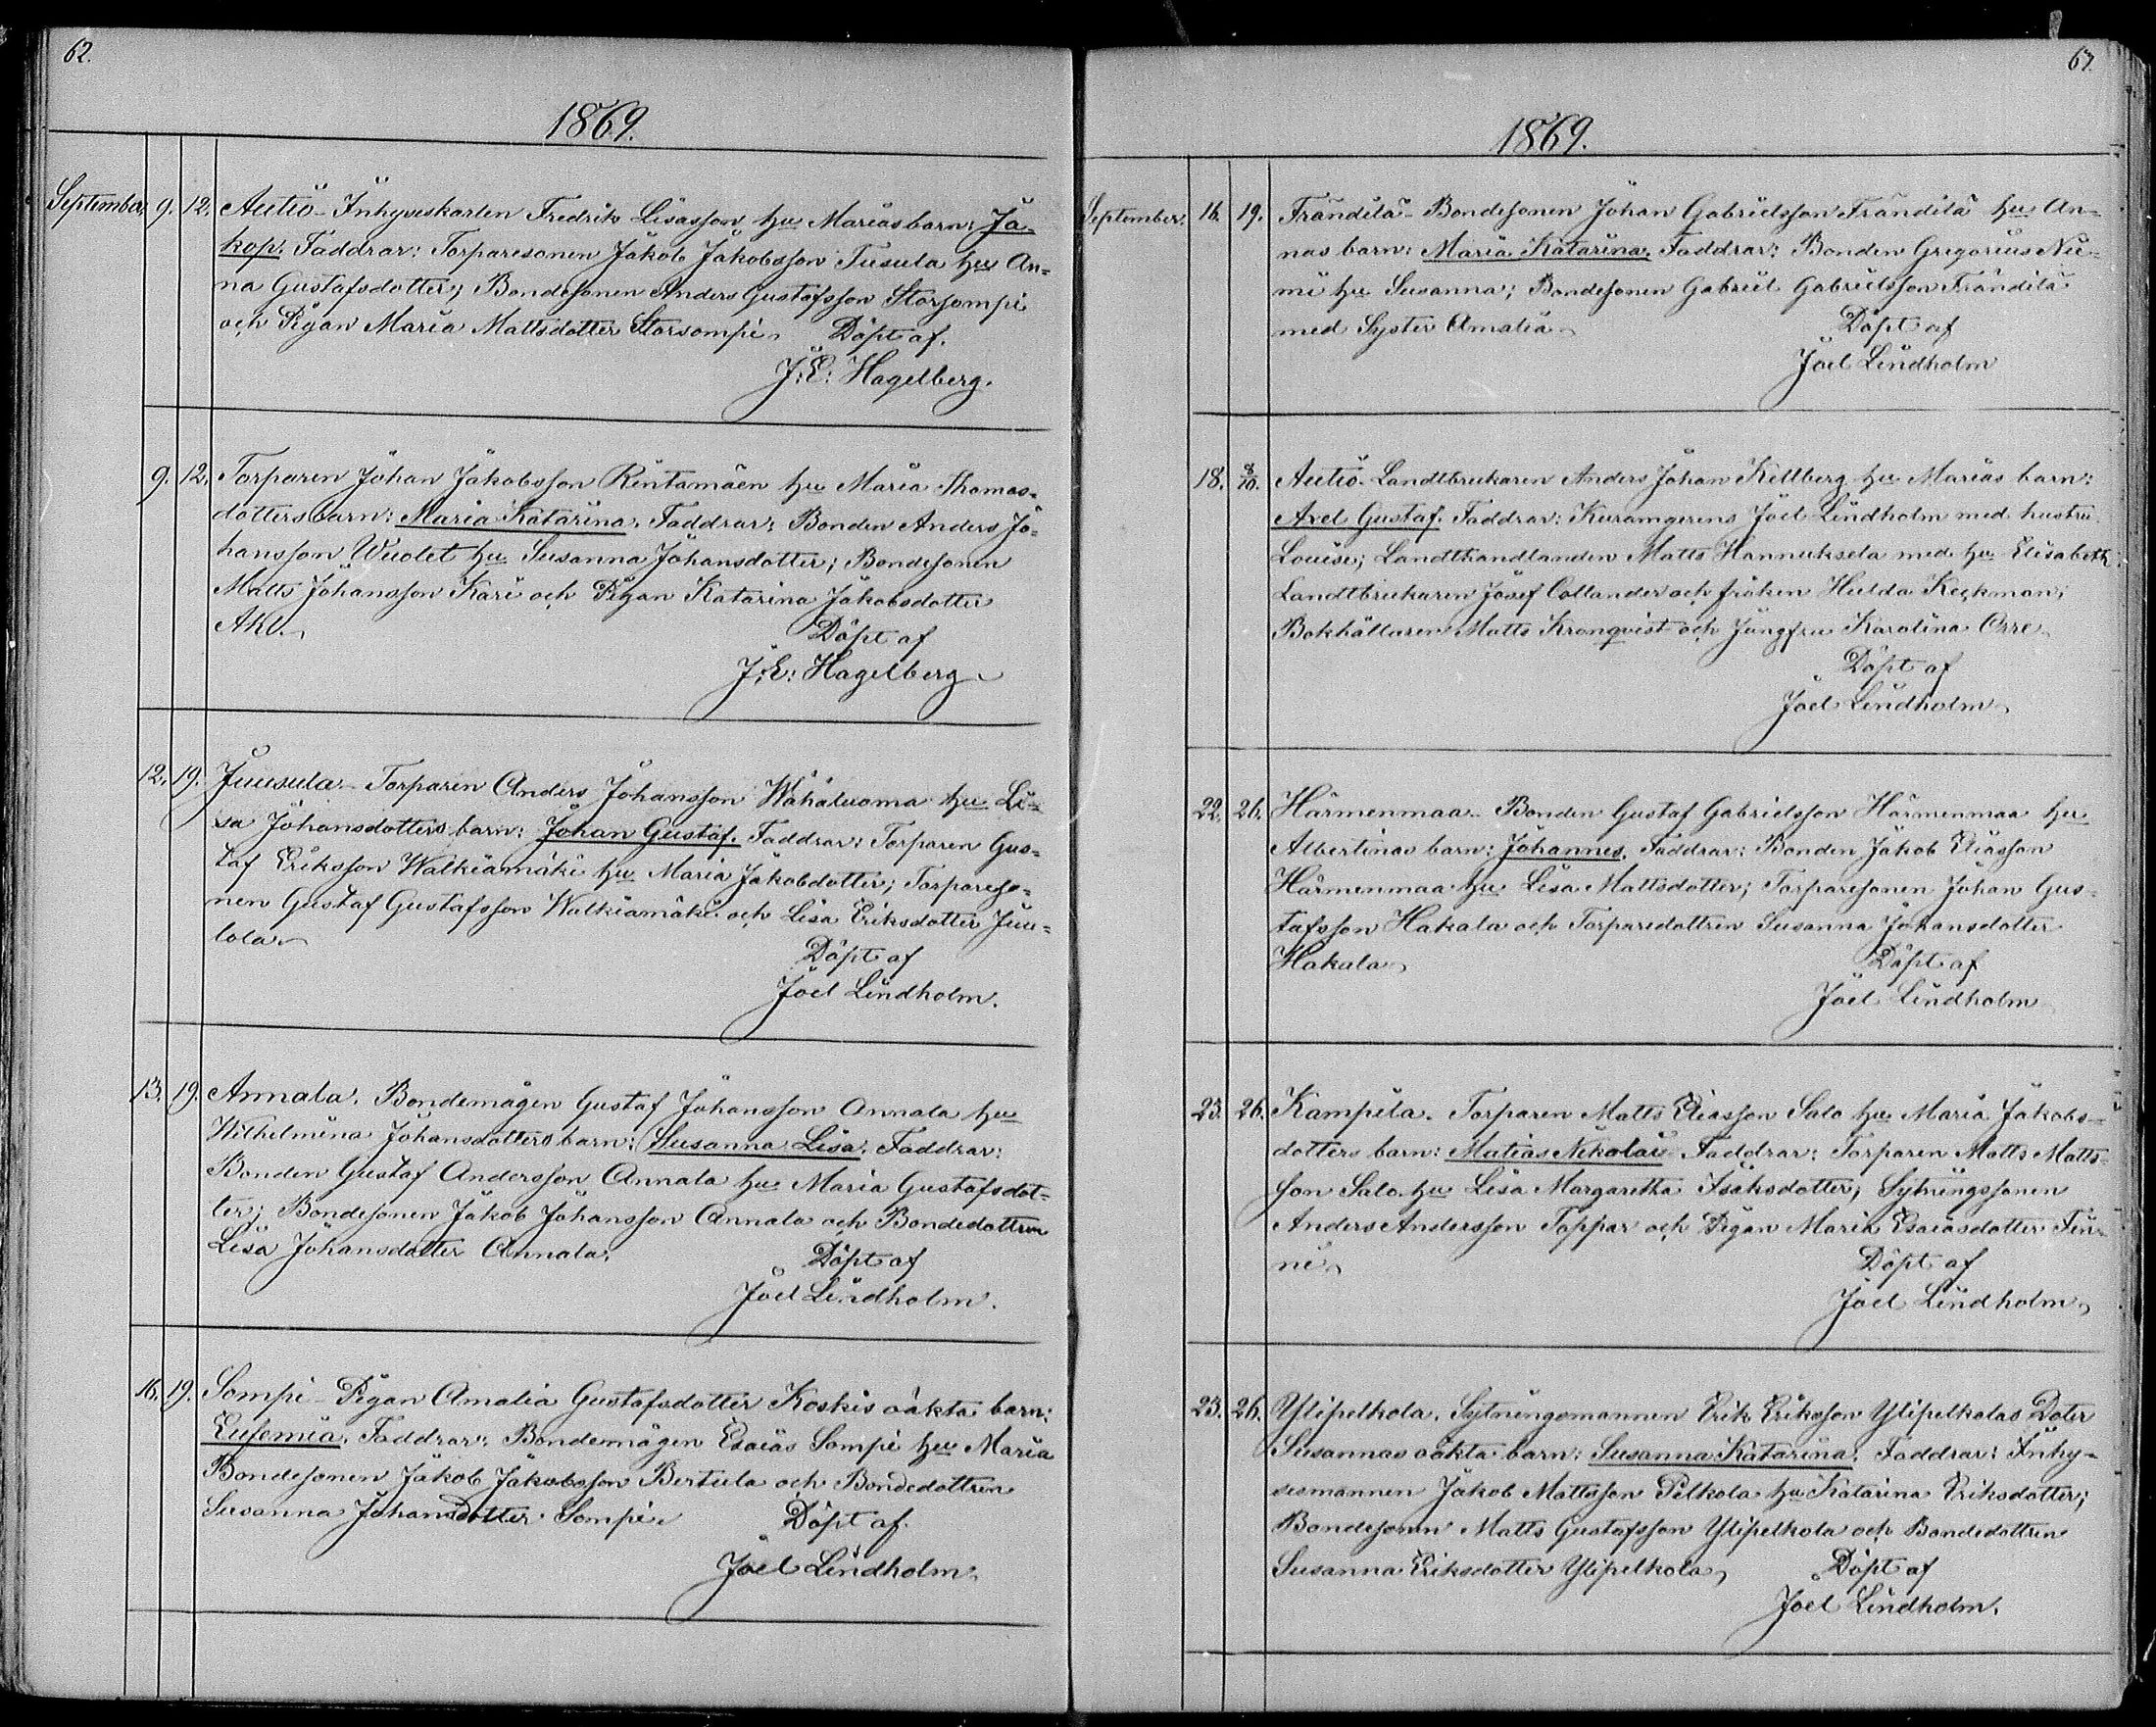 62.
1869.
September. 9. 12. Autio - Inhyseskarlen Fredrik Lisasson hu Marias barn: Ja-
kop. Faddrar: Torparesonen Jakob Jakobsson Tusula hu An-
na Gustafsdotter; Bondesonen Anders Gustafsson Storsompi
och Pigan Maria Mattsdotter Storsompi. Döpt af.
J: E: Hagelberg.
9. 12. Torparen Johan Jakobsson Rintamäen hu Maria Thomas-
dotters barn: Maria Katarina. Faddrar: Bonden Anders Jo-
hansson Wuolet hu Susanna Johansdotter; Bondesonen
Matts Johansson Kari och Pigan Katarina Jakobsdotter
Akl. Döpt af
J: E: Hagelberg
12. 19. Juusula - Torparen Anders Johansson Wähäluoma hu Li-
sa Johansdotters barn: Johan Gustaf. Faddrar: Torparen Gus-
taf Eriksson Walkiamäki hu Maria Jakobdotter; Torpareso-
nen Gustaf Gustafsson Walkiamäki och Lisa Eriksdotter Juu-
lola. Döpt af
Joel Lindholm.
13. 19. Annala. Bondemågen Gustaf Johansson Annala hu
Wilhelmina Johansdotters barn: Susanna Lisa. Faddrar:
Bonden Gustaf Andersson Annala hu Maria Gustafsdot-
ter; Bondesonen Jakob Johansson Annala och Bondedottren
Lisa Johansdotter Annala. Döpt af
Joel Lindholm.
16. 19. Sompi - Pigan Amalia Gustafsdotter Koskis oäkta barn:
Eufemia. Faddrar: Bondemågen Esaias Sompi hu Maria
Bondesonen Jakob Jakobsson Bertula och Bondedottren
Susanna Johansdotter Sompi. Döpt af.
Joel Lindholm.
63.
1869.
September. 16. 19. Frändilä - Bondesonen Johan Gabrielsson Frändilä hu An-
nas barn: Maria Katarina. Faddrar: Bonden Gregorius Nie-
mi hu Susanna; Bondesonen Gabriel Gabrielsson Frändilä
med Syster Amalia. Döpt af
Joel Lindholm
18. 8/10. Autio. Landtbrukaren Anders Johan Kellberg hu Marias barn:
Axel Gustaf. Faddrar: Joel Lindholm med hustru
Louise; Landthandlanden Matts Hannuksela med hu Elisabeth;
Landtbrukaren Josef Collander och fröken Hulda Keckman;
Bokhållaren Matts Kronqvist och Jungfru Karolina Orre.
Döpt af
Joel Lindholm.
22. 26. Härmenmaa - Bonden Gustaf Gabrielsson Härmenmaa hu
Albertinas barn: Johannes. Faddrar: Bonden Jakob Eliasson
Härmenmaa hu Lisa Mattsdotter; Torparesonen Johan Gus-
tafsson Hakala och Torparedottren Susanna Johansdotter
Hakala. Döpt af
Joel Lindholm
23. 26. Kampila. Torparen Matts Eliasson Salo hu Maria Jakobs-
dotters barn: Matias Nikolai. Faddrar: Torparen Matts Matts-
son Salo hu Lisa Margaretha Isaksdotter; Sytningssonen
Anders Andersson Toppar och Pigan Maria Esaiasdotter Fin-
ni. Döpt af
Joel Lindholm.
23. 26. Ylipelkola. Sytningsmannen Erik Eriksson Ylipelkolas Doter
Susannas oäkta barn: Susanna Katarina. Faddrar: Inhy-
sesmannen Jakob Mattsson Pelkola hu Katarina Eriksdotter;
Bondesonen Matts Gustafsson Ylipelkola och Bondedottren
Susanna Eriksdotter Ylipelkola. Döpt af
Joel Lindholm.